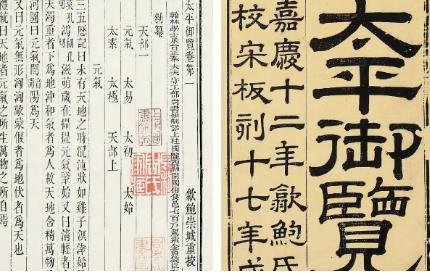 太平御覽
嘉慶十二年歙鮑氏
校宋板刻十七年成
太平御覽卷第一
歙鮑崇城重校
天部一
元氣 太易 太初 太始
太素 太極 天部上
元氣
三五歷記曰未有天地之時混沌狀如雞子溟涬始
濛鴻滋萌歲在攝提元氣肇始又曰清輕者
天濁重者下為地沖和氣者為人故天地含精萬物
河圖曰元氣闓陽為天
又曰元氣無形洶洶蒙蒙偃者為地伏者為天也
禮統曰天地者元氣之所生萬物之所自焉